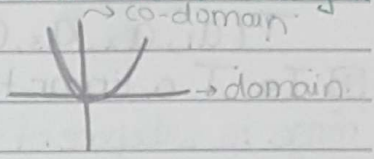 co-domain.
domain.